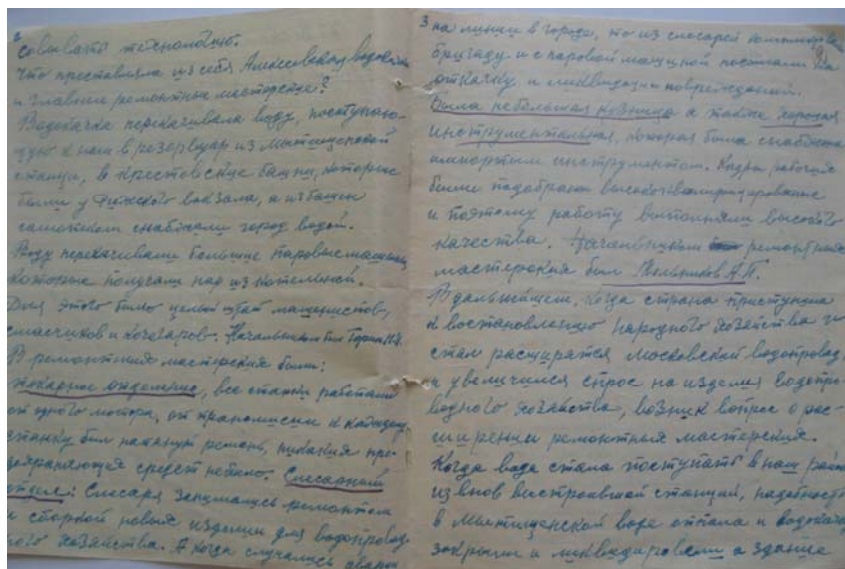 2
совывать технологию.
Что преставляла из себя Алексеевская водокачка
и главные ремонтные мастерские?
Водокачка перекачивала воду, поступаю-
щую к нам в резервуар из Мытищенской
станции, в крестовские башни, которые
были у Рижского вокзала, а из башен
самотеком снабжали город водой.
Воду перекачивали большие паровые машины
которые получали пар из котельной.
Для этого было целый штат машинистов,
смасчиков и кочегаров. Начальником был
В ремонтных мастерских были:
токарное отделение, все станки работали
от одного мотора, от трансмиссии к каждому
станку был натянут ремень, никаких пре-
дохраняющих средст небыло. Слесарный
Слесаря занимались ремонтом
и сборкой новых изделий для водопровод-
ного хозяйства. А когда случались аварии
3
на линии в городе, то из слесарей
бригаду и с паровой машиной посылали на
откачку и ликвидации повреждений.
Была небольшая кузница а также хорошая
инструментальная, которая была снабжена
импортным инструментом. Кадры рабочих
были подобраны высококвалифицированные
и поэтому работу выполняли высокого
качества. Начальником ремонтных
мастерских был Мельников А.П.
В дальнейшем, когда страна приступила
к востановлению народного хозяйства и
стал расширятся московский водопровод,
и увеличился спрос на изделия водопро-
водного хозяйства, возник вопрос о рас-
ширении ремонтных мастерских.
Когда вода стала поступать в наш район
из внов выстроившей станции, надобность
в Мытищенской воде отпала и водокачку
закрыли и ликвидировали а здание